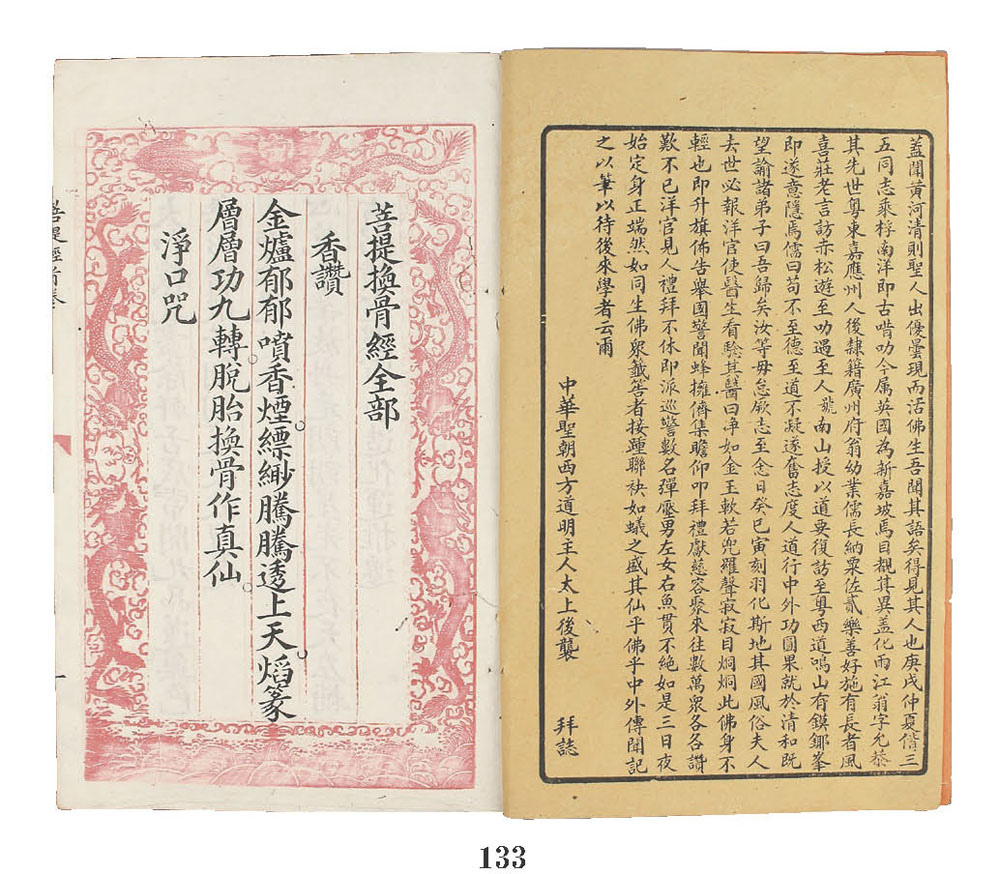 蓋聞黃河清則聖人出優曇現而活佛生吾聞其語矣得見其人也庚戌仲夏偕三
五同志乘桴南洋即古喈叻今属英國為新嘉坡焉目覩其異蓋化雨江翁字允恭
其先世粵東嘉應州人後隸籍廣州府翁幼業儒長納粟佐貳樂善好施有長者風
喜莊老言訪赤松遊至叻遇至人龍南山授以道要復訪至粵西道鳴山有鏌鎁峯
即遂意隱焉儒曰苟不至德至道不凝遂奮志度人道行中外功圓果就於清和既
望諭諸弟子曰吾歸矣汝等毋怠厥志至念日癸巳寅刻羽化斯地其國風俗夫人
去世必報洋官使醫生看驗其醫曰净如金玉軟若兜羅聲寂寂目炯炯此佛身不
輕也即升旗佈告舉國警聞蜂擁儕集瞻仰叩拜禮獻慈容聚來往數萬衆各各讚
歎不已洋官見人禮拜不休即派巡警數名彈壓男左女右魚貫不絶如是三日夜
始定身正端然如同生佛衆籤咨者接踵聯袂如蟻之盛其仙乎佛乎中外傳聞記
之以筆以待後來學者云爾
中華聖朝西方道明主人太上後襲 拜誌
菩提換骨經全部
香讚
金爐郁郁噴香煙縹緲騰騰透上天焰篆
層層功九轉脫胎換骨作真仙
淨口咒
菩提經前卷
一
133